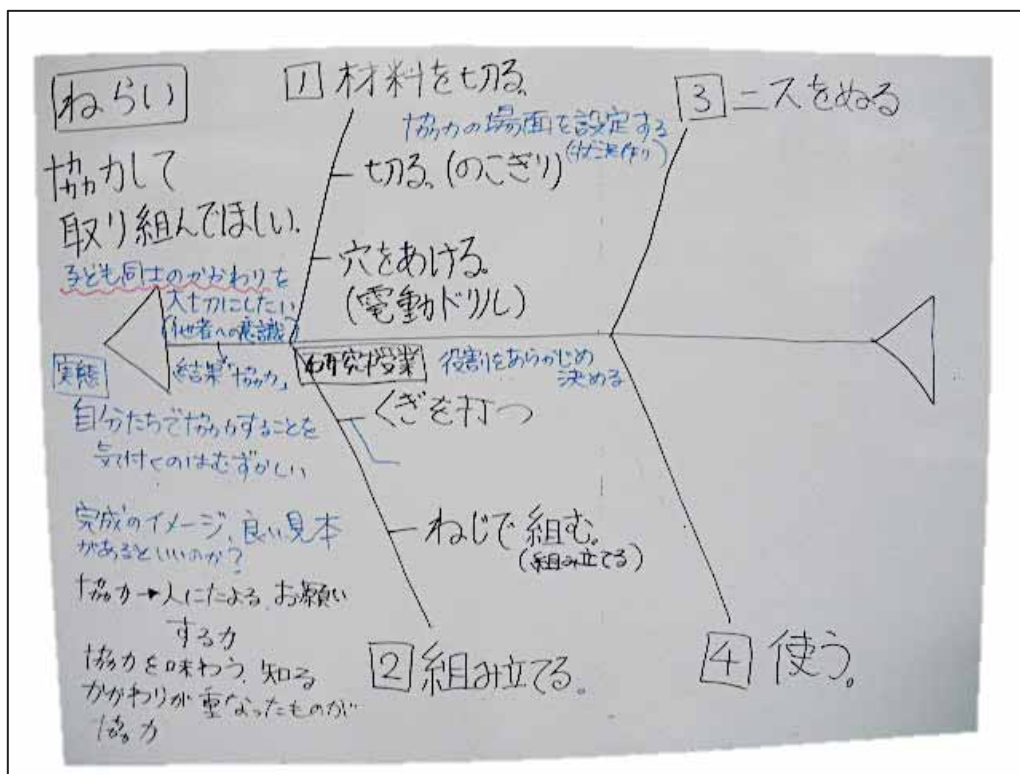 ねらい
協力して
取り組んでほしい。
子ども同士のかかわりを
大切にしたい
(他者への意識)
結果「協力」
実態
自分たちで協力することを
気付くのはむずかしい
完成のイメージ、良い見本
があるといいのか?
協力→人にたよる、お願い
する力
協力を味わう、知る
かかわりが重なったものが
協力
1 材料を切る。
協力の場面を設定する
(状況作り)
切る。(のこぎり)
穴をあける。
(電動ドリル)
研究授業
役割をあらかじめ
決める
くぎを打つ
ねじで組む。
(組み立てる)
2 組み立てる。
3 ニスをぬる
4 使う。